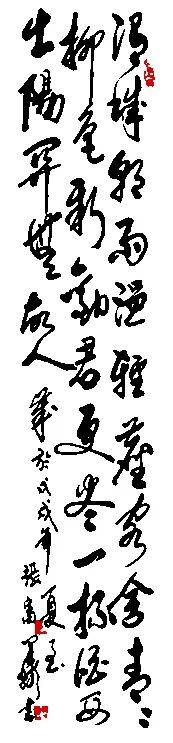 渭城朝雨浥輕塵客舍青々
柳色新勸君更尽一杯酒西
出陽關無故人
歲於戊戌年夏至
張
書